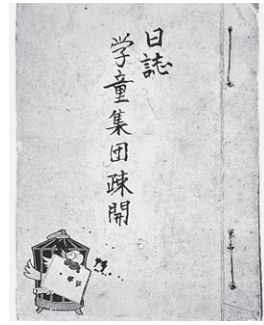 日誌
学童集団疎開